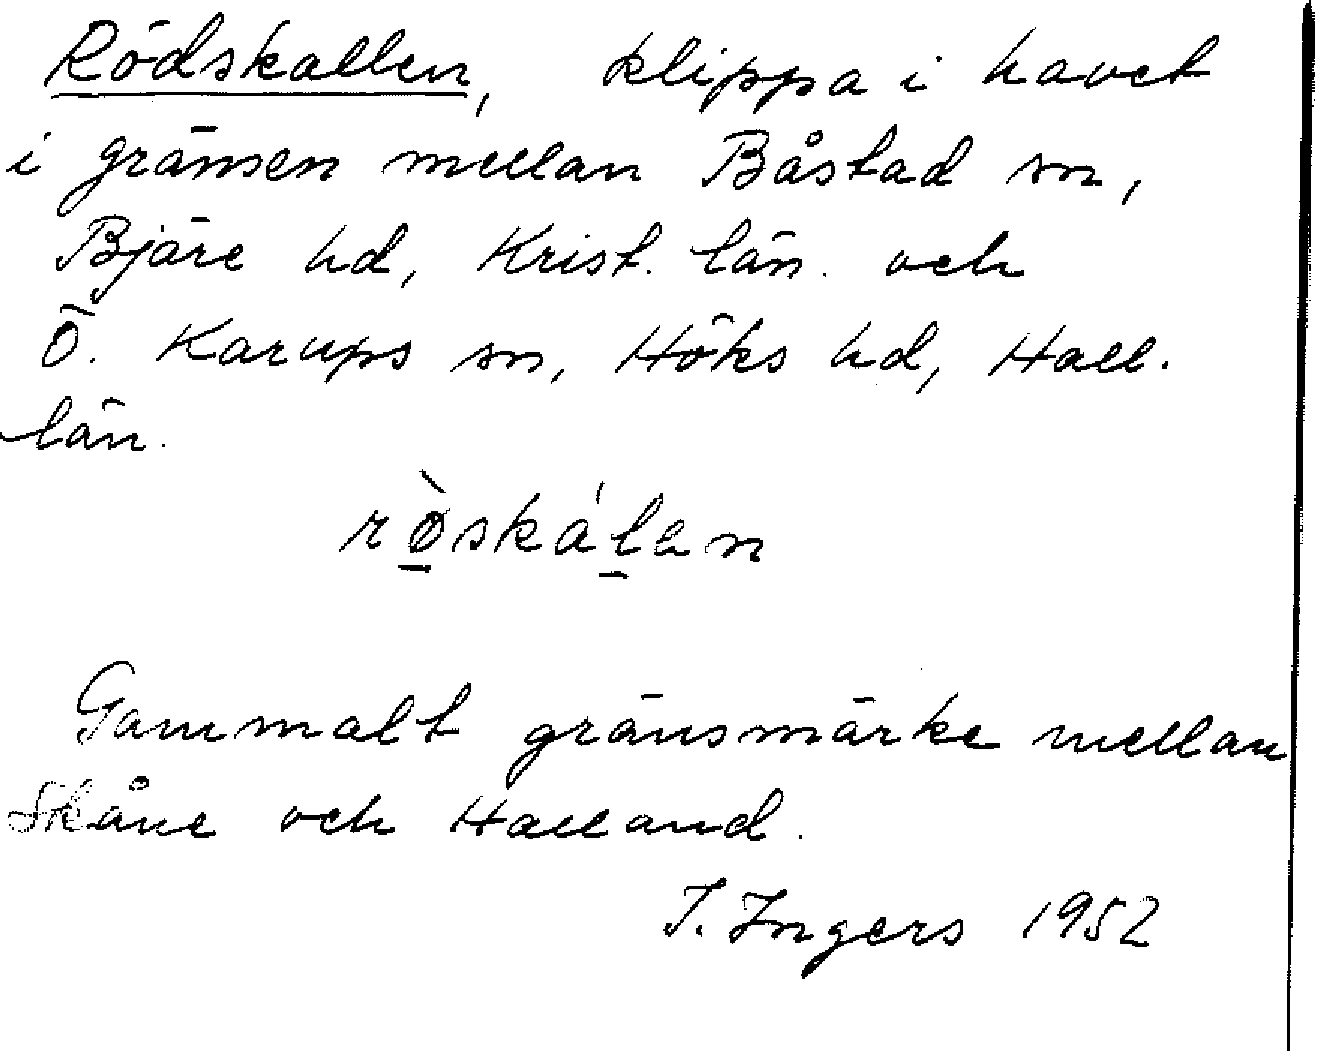 Rödskallen, klippa i havet
i gränsen mellan Båstad sn,
Bjäre hd, Krist. län. och
Ö. Karups sn, Höks hd, Hall.
län.
rø̀skálan
Gammalt gränsmärke mellan
Skåne och Halland.
I. Ingers 1952